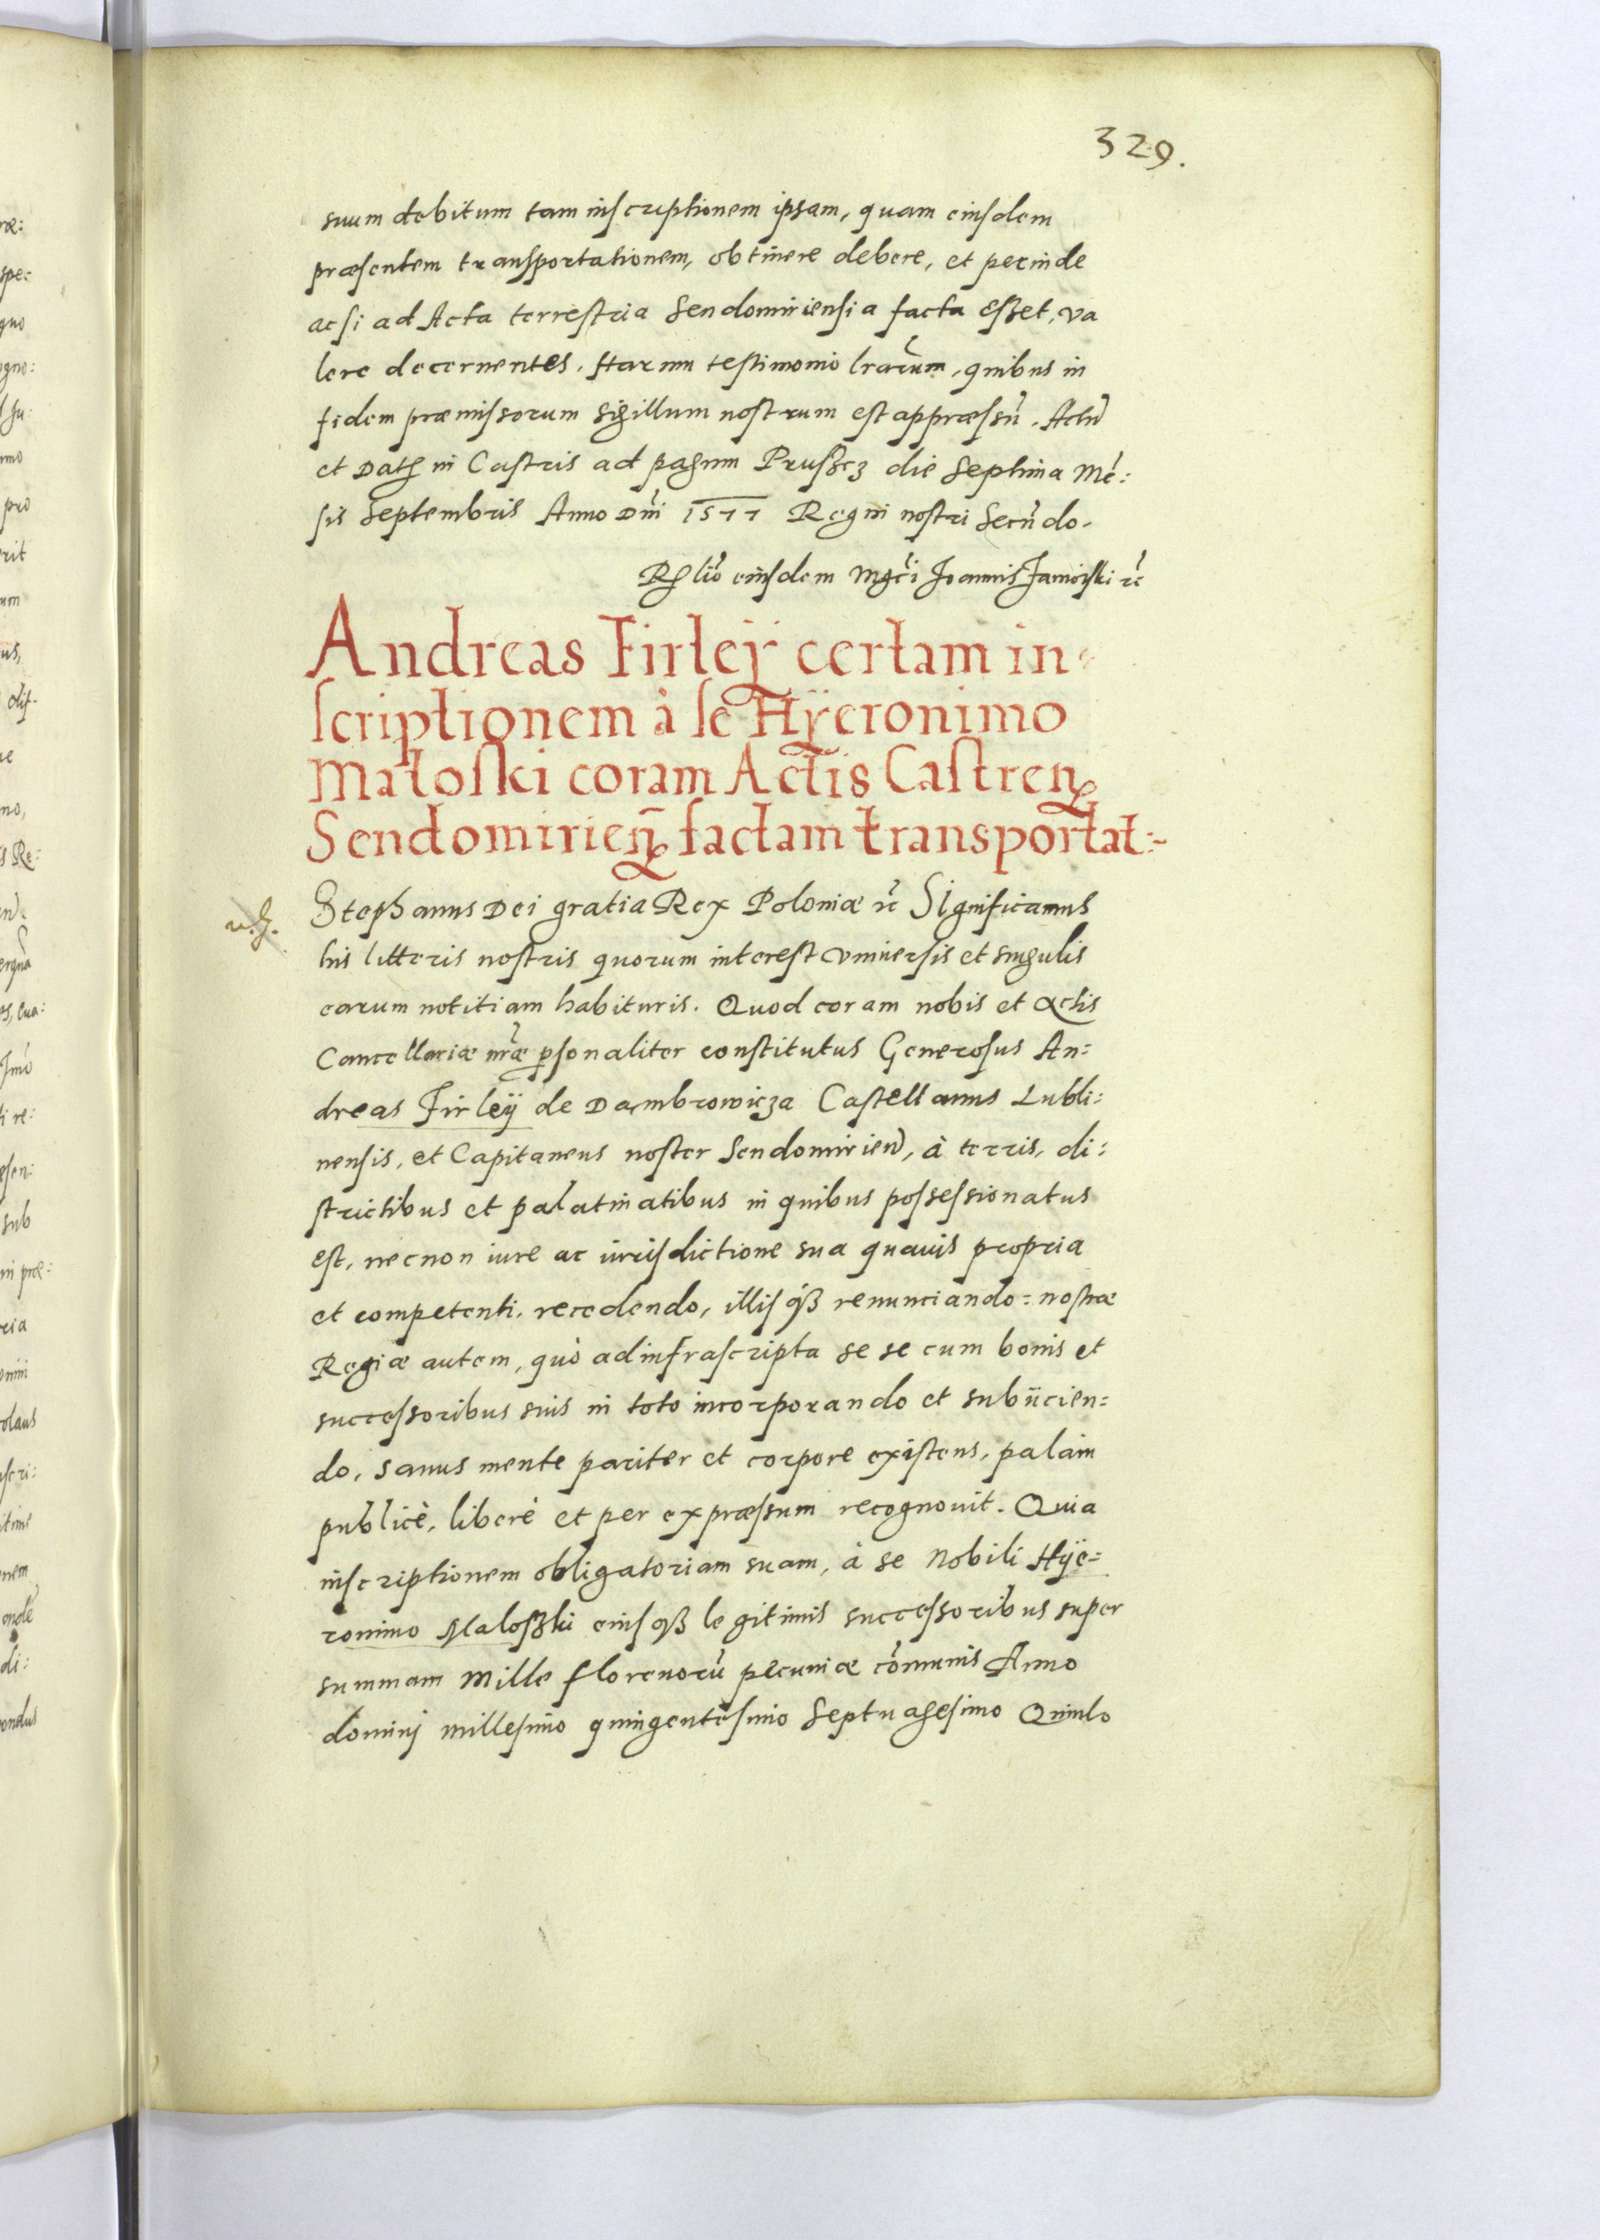 329.
suum debitum tam inscriptionem ipsam, quam eiusdem
præsentem transportationem, obtinere debere, et perinde
ac si ad Acta terrestria Sendomiriensia facta esset, va
lere decernentes. Harum testimonio lrarum, quibus in
fidem præmissorum sigillum nostrum est appræssu̅. Actu̅
et Dat in Castris ad pagum Pruszcz die Septima Me̅:
sis Septembris Anno Dni 1577 Regni nostri Secu̅do.
Rlio eiusdem Mgci Joannis Zamoiski rc
Andreas Firleÿ certam in-
scriptionem à se Hÿeronimo
Małoski coram Actis Castren
Sendomirien factam transportat:~
Stephanus Dei gratia Rex Poloniæ rc Significamus
his litteris nostris quorum interest vniuersis et singulis
earum notitiam habituris. Quod coram nobis et Actis
Cancellariæ nræ psonaliter constitutus Generosus An=
dreas Firleÿ de Dambrowicza Castellanus Lubli:
nensis, et Capitaneus noster Sendomirien, à terris, di:
strictibus et palatinatibus in quibus possessionatus
est, necnon iure ac iurisdictione sua quauis propria
et competenti. recedendo, illisqȝ renunciando: nostræ
Regiæ autem, quò ad infrascripta se se cum bonis et
successoribus suis in toto incorporando et subiicien=
do, sanus mente pariter et corpore existens, palàm
publicè, liberè et per expræssum recognouit. Quia
inscriptionem obligatoriam suam, à se Nobili Hÿe=
ronimo Maloszki eiusqȝ legitimis successoribus super
summam Mille florenoru̅ pecuniæ co̅munis Anno
dominj millesimo quingentesimo Septuagesimo Quinto